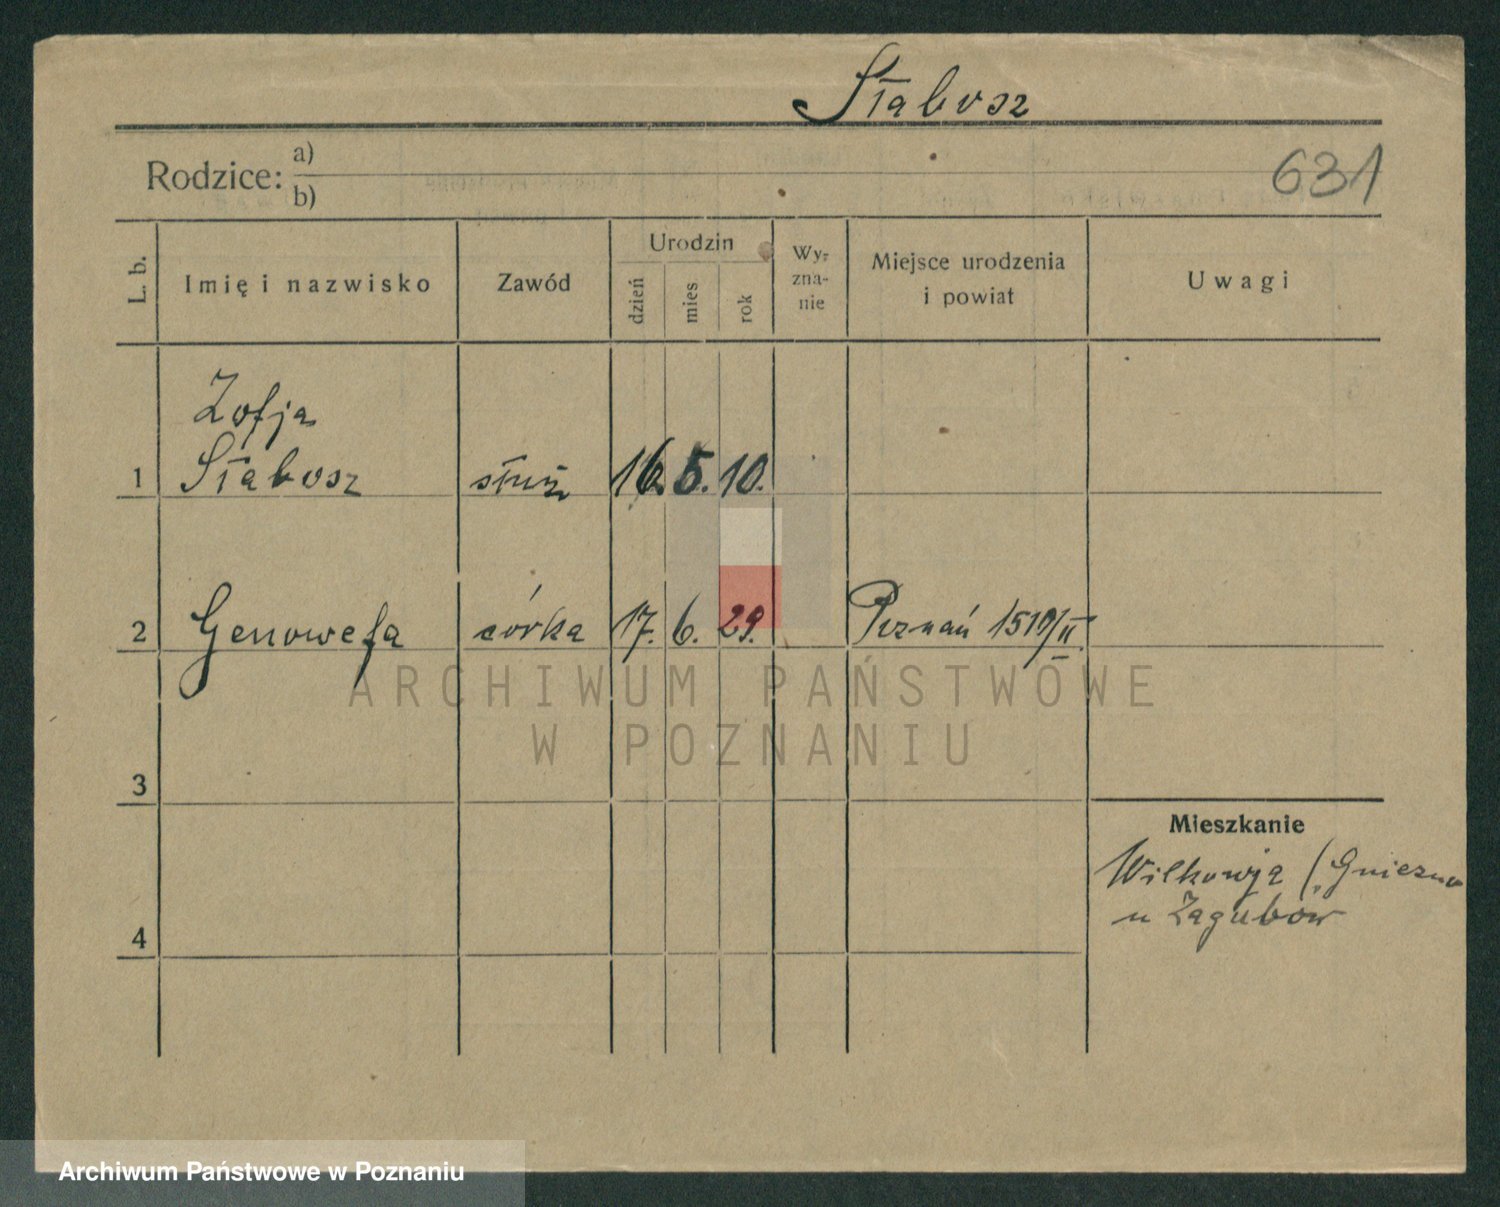 Słabosz
Rodzice: a)
b)
631
L. b.
Imię i nazwisko
Zawód
Urodzin
dzień
mies
rok
Wy-
zna-
nie
Miejsce urodzenia
i powiat
Uwagi
Zofja
1 Słabosz służ 16. 5. 10.
2 Genowefa córka 17. 6. 29. Poznań 1510/II
3
4
Mieszkanie
Wilkowyja (Gniezno
u Zagubów
ARCHIWUM PAŃSTWOWE
W POZNANIU
Archiwum Państwowe w Poznaniu